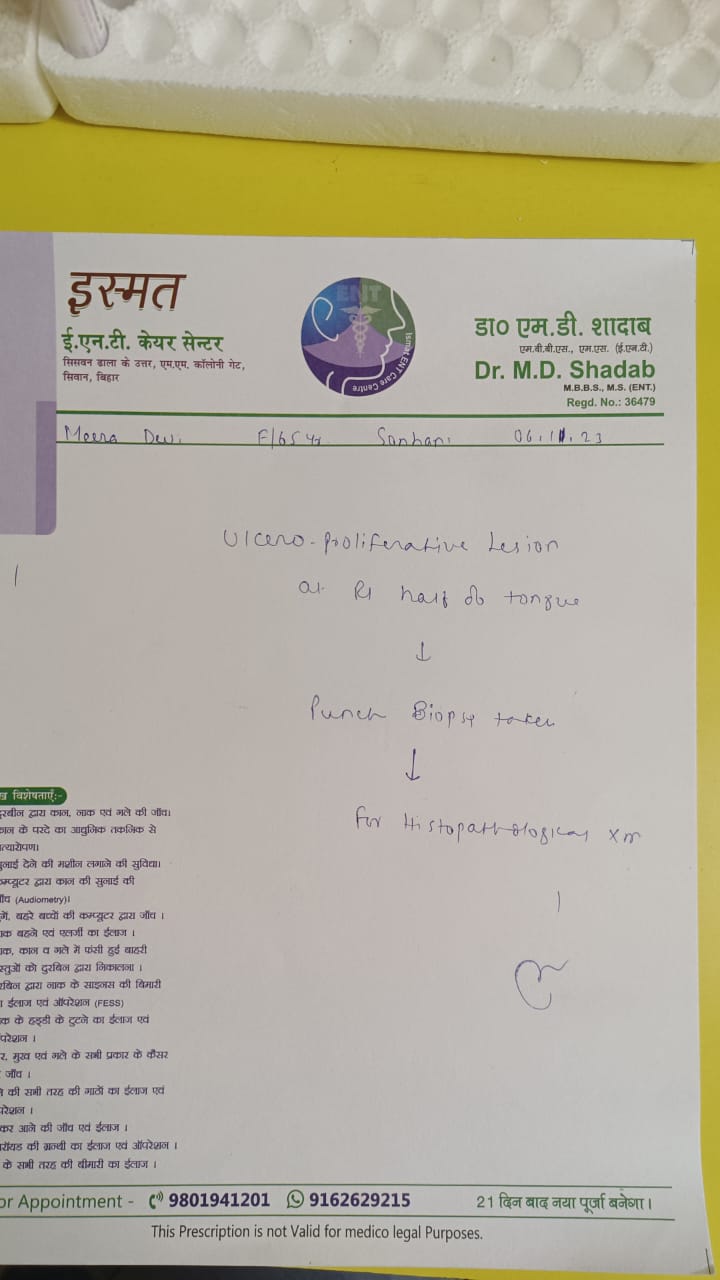 इस्मत
ई.एन.टी. केयर सेन्टर
सिसवन ढाला के उत्तर, एम.एम. कॉलोनी गेट,
सिवान, बिहार
ENT
Ismat ENT Care Centre
डा० एम.डी. शादाब
एम.बी.बी.एस., एम.एस. (ई.एन.टी.)
Dr. M.D. Shadab
M.B.B.S., M.S. (ENT.)
Regd. No.: 36479
Meera Devi F/65 yr 06.11.23
Ulcero-proliferative Lesion
at Rt half of tongue
↓
Punch Biopsy taken
↓
for Histopathological
विशेषताएँ:-
दुरबीन द्वारा कान, नाक एवं गले की जाँच।
कान के परदे का आधुनिक तकनिक से
त्यारोपण।
नाई देने की मशीन लगाने की सुविधा।
म्प्यूटर द्वारा कान की सुनाई की
ाँच (Audiometry)।
गें, बहरे बच्चों की कम्प्यूटर द्वारा जाँच ।
ाक बहने एवं एलर्जी का ईलाज ।
ाक, कान व गले में फंसी हुई बाहरी
स्तुओं को दुरबिन द्वारा निकालना ।
रबिन द्वारा नाक के साइनस की बिमारी
ा ईलाज एवं ऑपरेशन (FESS)
क के हड्डी के टुटने का ईलाज एवं
परेशन ।
र, मुख एवं गले के सभी प्रकार के कैंसर
जाँच ।
े की सभी तरह की गाठों का ईलाज एवं
परेशन ।
कर आने की जाँच एवं ईलाज ।
रॉयड की ग्रन्थी का ईलाज एवं ऑपरेशन ।
के सभी तरह की बीमारी का ईलाज ।
or Appointment - 9801941201 9162629215 21 दिन बाद नया पूर्जा बनेगा।
This Prescription is not Valid for medico legal Purposes.